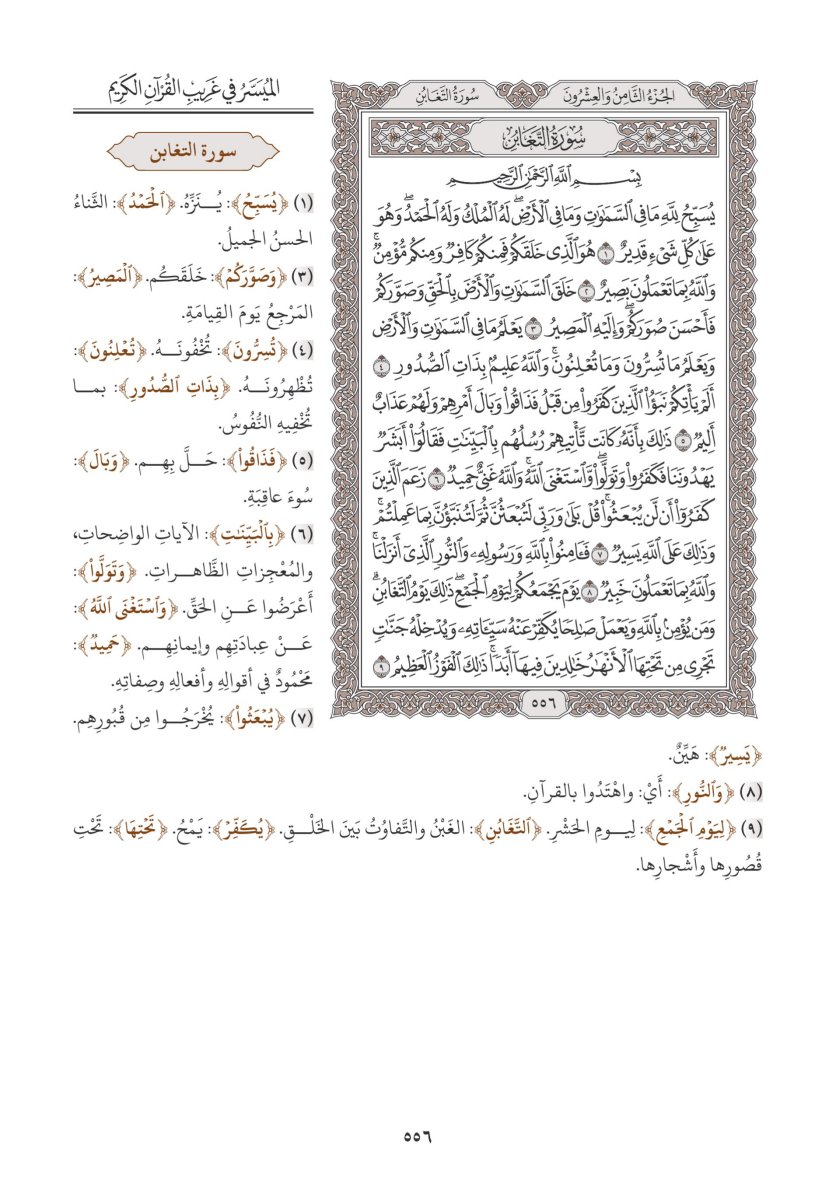 الميَسَّرُ في غَرِيبِ القُرْآنِ الكَرِيم
الجُزْءُ الثَّامِنُ وَالعِشْرُونَ
سُورَةُ التَّغَابُنِ
سُورَةُ التَّغَابُنِ
بِسْمِ ٱللَّهِ ٱلرَّحْمَٰنِ ٱلرَّحِيمِ
يُسَبِّحُ لِلَّهِ مَا فِي ٱلسَّمَٰوَٰتِ وَمَا فِي ٱلْأَرْضِۖ لَهُ ٱلْمُلْكُ وَلَهُ ٱلْحَمْدُۖ وَهُوَ
عَلَىٰ كُلِّ شَىْءٍ قَدِيرٌ ١ هُوَ ٱلَّذِى خَلَقَكُمْ فَمِنكُمْ كَافِرٌ وَمِنكُم مُّؤْمِنٌۚ
وَٱللَّهُ بِمَا تَعْمَلُونَ بَصِيرٌ ٢ خَلَقَ ٱلسَّمَٰوَٰتِ وَٱلْأَرْضَ بِٱلْحَقِّ وَصَوَّرَكُمْ
فَأَحْسَنَ صُوَرَكُمْۖ وَإِلَيْهِ ٱلْمَصِيرُ ٣ يَعْلَمُ مَا فِي ٱلسَّمَٰوَٰتِ وَٱلْأَرْضِ
وَيَعْلَمُ مَا تُسِرُّونَ وَمَا تُعْلِنُونَۚ وَٱللَّهُ عَلِيمٌۢ بِذَاتِ ٱلصُّدُورِ ٤
أَلَمْ يَأْتِكُمْ نَبَؤُا۟ ٱلَّذِينَ كَفَرُوا۟ مِن قَبْلُ فَذَاقُوا۟ وَبَالَ أَمْرِهِمْ وَلَهُمْ عَذَابٌ
أَلِيمٌ ٥ ذَٰلِكَ بِأَنَّهُۥ كَانَت تَّأْتِيهِمْ رُسُلُهُم بِٱلْبَيِّنَٰتِ فَقَالُوٓا۟ أَبَشَرٌ
يَهْدُونَنَا فَكَفَرُوا۟ وَتَوَلَّوا۟ۖ وَّٱسْتَغْنَى ٱللَّهُۚ وَٱللَّهُ غَنِىٌّ حَمِيدٌ ٦ زَعَمَ ٱلَّذِينَ
كَفَرُوٓا۟ أَن لَّن يُبْعَثُوا۟ۚ قُلْ بَلَىٰ وَرَبِّى لَتُبْعَثُنَّ ثُمَّ لَتُنَبَّؤُنَّ بِمَا عَمِلْتُمْۚ
وَذَٰلِكَ عَلَى ٱللَّهِ يَسِيرٌ ٧ فَـَٔامِنُوا۟ بِٱللَّهِ وَرَسُولِهِۦ وَٱلنُّورِ ٱلَّذِىٓ أَنزَلْنَاۚ
وَٱللَّهُ بِمَا تَعْمَلُونَ خَبِيرٌ ٨ يَوْمَ يَجْمَعُكُمْ لِيَوْمِ ٱلْجَمْعِۖ ذَٰلِكَ يَوْمُ ٱلتَّغَابُنِۗ
وَمَن يُؤْمِنۢ بِٱللَّهِ وَيَعْمَلْ صَٰلِحًا يُكَفِّرْ عَنْهُ سَيِّـَٔاتِهِۦ وَيُدْخِلْهُ جَنَّٰتٍ
تَجْرِى مِن تَحْتِهَا ٱلْأَنْهَٰرُ خَٰلِدِينَ فِيهَآ أَبَدًاۚ ذَٰلِكَ ٱلْفَوْزُ ٱلْعَظِيمُ ٩
٥٥٦
سورة التغابن
(١) ﴿يُسَبِّحُ﴾: يُنَزِّهُ. ﴿ٱلْحَمْدُ﴾: الثَّناءُ
الحسنُ الجميلُ.
(٣) ﴿وَصَوَّرَكُمْ﴾: خَلَقَكُم. ﴿ٱلْمَصِيرُ﴾:
المَرْجِعُ يَومَ القِيامَةِ.
(٤) ﴿تُسِرُّونَ﴾: تُخْفُونَهُ. ﴿تُعْلِنُونَ﴾:
تُظْهِرُونَهُ. ﴿بِذَاتِ ٱلصُّدُورِ﴾: بما
تُخْفِيهِ النُّفُوسُ.
(٥) ﴿فَذَاقُوا۟﴾: حَلَّ بِهِم. ﴿وَبَالَ﴾:
سُوءَ عاقِبَةِ.
(٦) ﴿بِٱلْبَيِّنَٰتِ﴾: الآياتِ الواضِحاتِ،
والمُعْجِزاتِ الظَّاهراتِ. ﴿وَتَوَلَّوا۟﴾:
أَعْرَضُوا عَنِ الحَقِّ. ﴿وَٱسْتَغْنَى ٱللَّهُ﴾:
عَنْ عِبادَتِهِم وإيمانِهِم. ﴿حَمِيدٌ﴾:
مَحْمُودٌ في أقوالِهِ وأفعالِهِ وصِفاتِهِ.
(٧) ﴿يُبْعَثُوا۟﴾: يُخْرَجُوا مِن قُبُورِهِم.
﴿يَسِيرٌ﴾: هَيِّنٌ.
(٨) ﴿وَٱلنُّورِ﴾: أَيْ: واهْتَدُوا بالقرآنِ.
(٩) ﴿لِيَوْمِ ٱلْجَمْعِ﴾: لِيومِ الحَشْرِ. ﴿ٱلتَّغَابُنِ﴾: الغَبْنُ والتَّفاوُتُ بَينَ الخَلْقِ. ﴿يُكَفِّرْ﴾: يَمْحُ. ﴿تَحْتِهَا﴾: تَحْتِ
قُصُورِها وأَشْجارِها.
٥٥٦